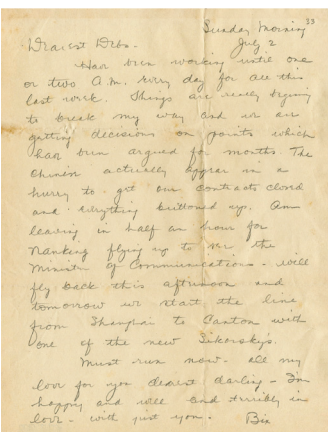 33
Sunday Morning
July 2
Dearest Debs-
Have been working until one
or two A.M. every day for all this
last week. Things are really beginning
to break my way and we are
getting decisions on points which
have been argued for months. The
Chinese actually appear in a
hurry to get our contracts closed
and everything buttoned up. Am
leaving in half an hour for
Nanking flying up to see the
Minister of Communications - will
fly back this afternoon and
tomorrow we start the line
from Shanghai to Canton with
one of the new Sikorsky's.
Must run now - all my
love for you dearest darling - I'm
happy and well and terribly in
love - with just you.
Bix